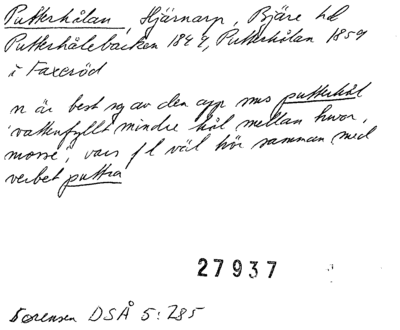 Putterhålan, Hjärnarp, Bjäre hd
Putterhålebacken 1847, Putterhålan 1859
i Faxeröd
n är best sg av den app mos putterhål
'vattenfyllt mindre hål mellan tuvor,
mosse', vars fl väl hör samman med
verbet puttra
27937
Sørensen DSÅ 5:285